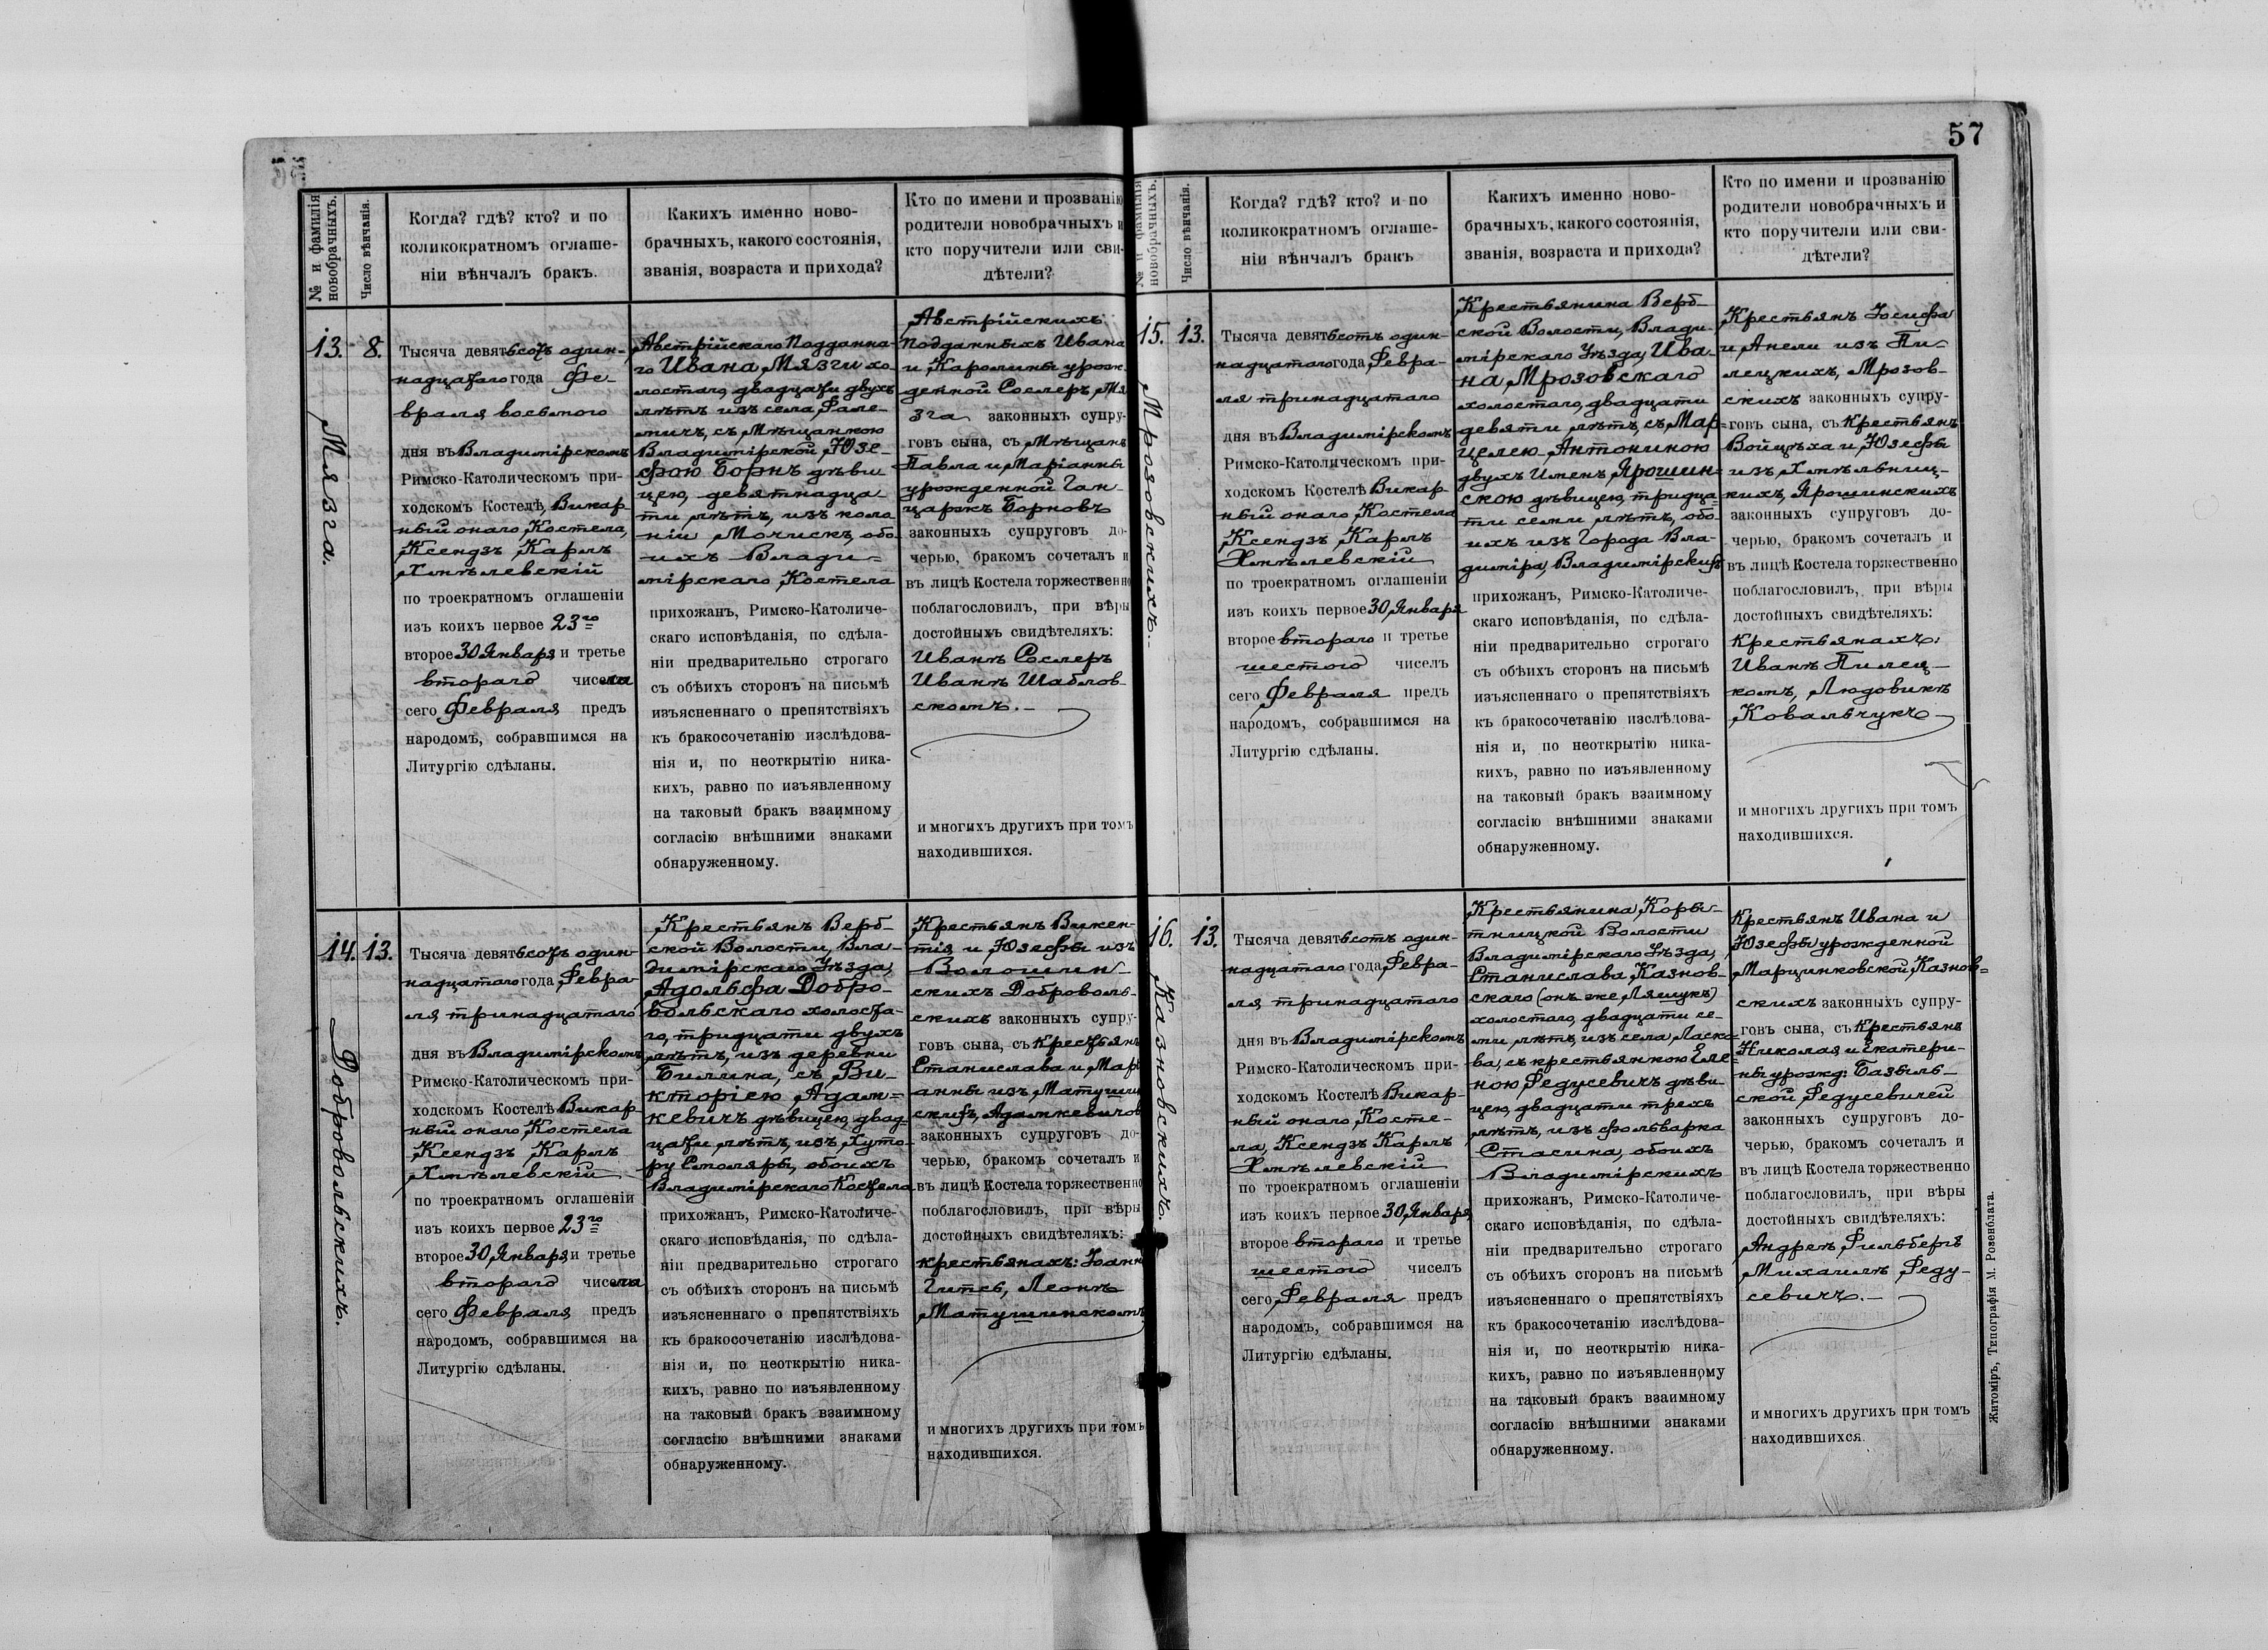 57
№ и фамилія новобрачныхъ.
Число вѣнчанія.
Когда? гдѣ? кто? и по
коликократномъ оглаше-
ніи вѣнчалъ бракъ.
Какихъ именно ново-
брачныхъ, какого состоянія,
званія, возраста и прихода?
Кто по имени и прозванію
родители новобрачныхъ и
кто поручители или сви-
дѣтели?
13.
Мязга.
8.
Тысяча девятьсотъ один-
надцатаго года Фе-
враля восьмого
дня въ Владимірскомъ
Римско-Католическомъ при-
ходскомъ Костелѣ, Викар-
ный онаго Костела,
Ксендзъ Карлъ
Хмѣлевскій
по троекратномъ оглашеніи
изъ коихъ первое 23го
второе 30 Января и третье
второго числа
сего Февраля предъ
народомъ, собравшимся на
Литургію сдѣланы.
Австрійскаго Подданна-
го Ивана Мязги хо-
лостаго, двадцати двухъ
лѣтъ изъ села Фале-
мичъ, съ Мѣщанкою
Владимірской Юзе-
фою Борнъ дѣви-
цею, девятнадца-
ти лѣтъ, изъ коло-
ніи Мочискъ, обо-
ихъ Влади-
мірскаго Костела
прихожанъ, Римско-Католиче-
скаго исповѣданія, по сдѣла-
ніи предварительно строгаго
съ обѣихъ сторонъ на письмѣ
изъясненнаго о препятствіяхъ
къ бракосочетанію изслѣдова-
нія и, по неоткрытію ника-
кихъ, равно по изъявленному
на таковый бракъ взаимному
согласію внѣшними знаками
обнаруженному.
Австрійскихъ
подданныхъ Ивана
и Каролины урож-
денной Сослеръ, Мя-
зга законныхъ супру-
говъ сына, съ Мѣщанъ
Павла и Маріанны
урожденной Ган-
царжъ Борновъ
законныхъ супруговъ до-
черью, бракомъ сочеталъ и
въ лицѣ Костела торжественно
поблагословилъ, при вѣры
достойныхъ свидѣтеляхъ:
Иванѣ Сослеръ
Иванѣ Шаблов-
скомъ.
и многихъ другихъ при томъ
находившихся.
14.
Добровольскихъ.
13.
Тысяча девятьсотъ один-
надцатаго года Февра-
ля тринадцатаго
дня въ Владимірскомъ
Римско-Католическомъ при-
ходскомъ Костелѣ Викар-
ный онаго Костела
Ксендзъ Карлъ
Хмѣлевскій
по троекратномъ оглашеніи
изъ коихъ первое 23го
второе 30 Января и третье
второго числа
сего Февраля предъ
народомъ, собравшимся на
Литургію сдѣланы.
Крестьянъ Верб-
ской Волости, Вла-
димірскаго Уѣзда,
Адольфа Добро-
вольскаго холоста-
го, тридцати двухъ
лѣтъ, изъ деревни
Билина, съ Ви-
кторіею Адам-
кевичъ дѣвицею, двад-
цати лѣтъ, изъ Хуто-
ру Смоляры, обоихъ
Владимірскаго Костела
прихожанъ, Римско-Католиче-
скаго исповѣданія, по сдѣла-
ніи предварительно строгаго
съ обѣихъ сторонъ на письмѣ
изъясненнаго о препятствіяхъ
къ бракосочетанію изслѣдова-
нія и, по неоткрытію ника-
кихъ, равно по изъявленному
на таковый бракъ взаимному
согласію внѣшними знаками
обнаруженному.
Крестьянъ Викен-
тія и Юзефы изъ
Волошин-
скихъ Доброволь-
скихъ законныхъ супру-
говъ сына, съ Крестьянъ
Станислава и Марі-
анны изъ Матушин-
скихъ, Адамкевичов
законныхъ супруговъ до-
черью, бракомъ сочеталъ и
въ лицѣ Костела торжественно
поблагословилъ, при вѣры
достойныхъ свидѣтеляхъ:
крестьянахъ: Іоанн
Леонѣ
Матушинскомъ
и многихъ другихъ при томъ
находившихся.
№ и фамилія новобрачныхъ.
Число вѣнчанія.
Когда? гдѣ? кто? и по
коликократномъ оглаше-
ніи вѣнчалъ бракъ
Какихъ именно ново-
брачныхъ, какого состоянія,
званія, возраста и прихода?
Кто по имени и прозванію
родители новобрачныхъ и
кто поручители или сви-
дѣтели?
15.
Мрозовскихъ.
13.
Тысяча девятьсотъ один-
надцатаго года Февра-
ля тринадцатаго
дня въ Владимірскомъ
Римско-Католическомъ при-
ходскомъ Костелѣ Викар-
ный онаго Костела
Ксендзъ Карлъ
Хмѣлевскій
по троекратномъ оглашеніи
изъ коихъ первое 30 Января
второе второго и третье
шестого чиселъ
сего Февраля предъ
народомъ, собравшимся на
Литургію сдѣланы.
Крестьянина Верб-
ской Волости, Влади-
мірскаго Уѣзда, Ива-
на Мрозовскаго
холостаго, двадцати
девяти лѣтъ, съ Мар-
целею-Антониною
двухъ Именъ, Ярошин-
скою дѣвицею, тридца-
ти семи лѣтъ, обо-
ихъ изъ Города Вла-
диміра, Владимірскихъ
прихожанъ, Римско-Католиче-
скаго исповѣданія, по сдѣла-
ніи предварительно строгаго
съ обѣихъ сторонъ на письмѣ
изъясненнаго о препятствіяхъ
къ бракосочетанію изслѣдова-
нія и, по неоткрытію ника-
кихъ, равно по изъявленному
на таковый бракъ взаимному
согласію внѣшними знаками
обнаруженному.
Крестьянъ Іосифа
и Анели изъ Пи-
лецкихъ, Мрозов-
скихъ законныхъ супру-
говъ сына, съ Крестьянъ
Войцѣха и Юзефы
изъ Хмѣльниц-
кихъ, Ярошинскихъ
законныхъ супруговъ до-
черью, бракомъ сочеталъ и
въ лицѣ Костела торжественно
поблагословилъ, при вѣры
достойныхъ свидѣтеляхъ:
крестьянахъ:
Иванѣ Пилец-
комъ, Людовикѣ
Ковальчукъ
и многихъ другихъ при томъ
находившихся.
16.
Казновскихъ.
13.
Тысяча девятьсотъ один-
надцатаго года Февра-
ля тринадцатаго
дня въ Владимірскомъ
Римско-Католическомъ при-
ходскомъ Костелѣ Викар-
ный онаго Косте-
ла, Ксендзъ Карлъ
Хмѣлевскій
по троекратномъ оглашеніи
изъ коихъ первое 30 Января
второе второго и третье
шестого чиселъ
сего Февраля предъ
народомъ, собравшимся на
Литургію сдѣланы.
Крестьянина Коры-
тницкой Волости
Владимірскаго Уѣзда,
Станислава Казнов-
скаго (онъ же Ляшукъ)
холостаго, двадцати се-
ми лѣтъ, изъ села Ласко-
ва, съ крестьянкою Еле-
ною Федусевичъ дѣви-
цею, двадцати трехъ
лѣтъ, изъ фольварка
Стасина, обоихъ
Владимірскихъ
прихожанъ, Римско-Католиче-
скаго исповѣданія, по сдѣла-
ніи предварительно строгаго
съ обѣихъ сторонъ на письмѣ
изъясненнаго о препятствіяхъ
къ бракосочетанію изслѣдова-
нія и, по неоткрытію ника-
кихъ, равно по изъявленному
на таковый бракъ взаимному
согласію внѣшними знаками
обнаруженному.
Крестьянъ Ивана и
Юзефы урожденной
Марцинковской, Казнов-
скихъ законныхъ супру-
говъ сына, съ Крестьянъ
Николая и Екатери-
ны урожд: Базыль-
ской Федусевичей
законныхъ супруговъ до-
черью, бракомъ сочеталъ и
въ лицѣ Костела торжественно
поблагословилъ, при вѣры
достойныхъ свидѣтеляхъ:
Андреѣ Фильбергъ
Михаилѣ Феду-
севичъ.
и многихъ другихъ при томъ
находившихся.
Житоміръ, Типографія М. Розенблата.